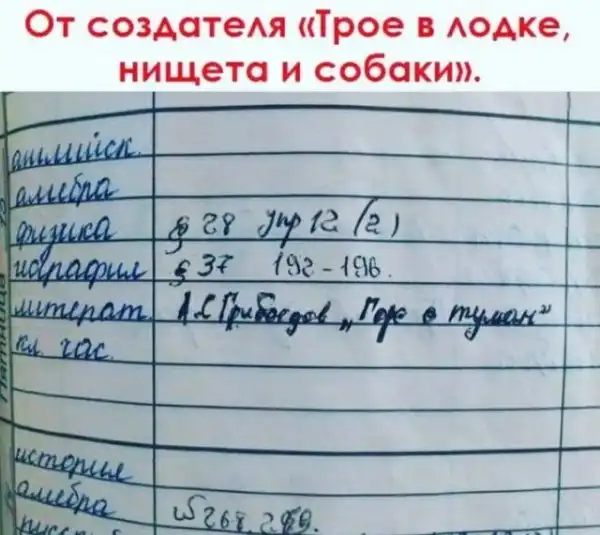 От создателя «Трое в лодке,
нищета и собаки».
английск.
алгебра
физика § 28 упр 12 (2)
география § 37 192-196.
литерат. А.С Грибоедов „Горе о туман"
кл. час.
Пятница
история
алгебра № 268, 269.